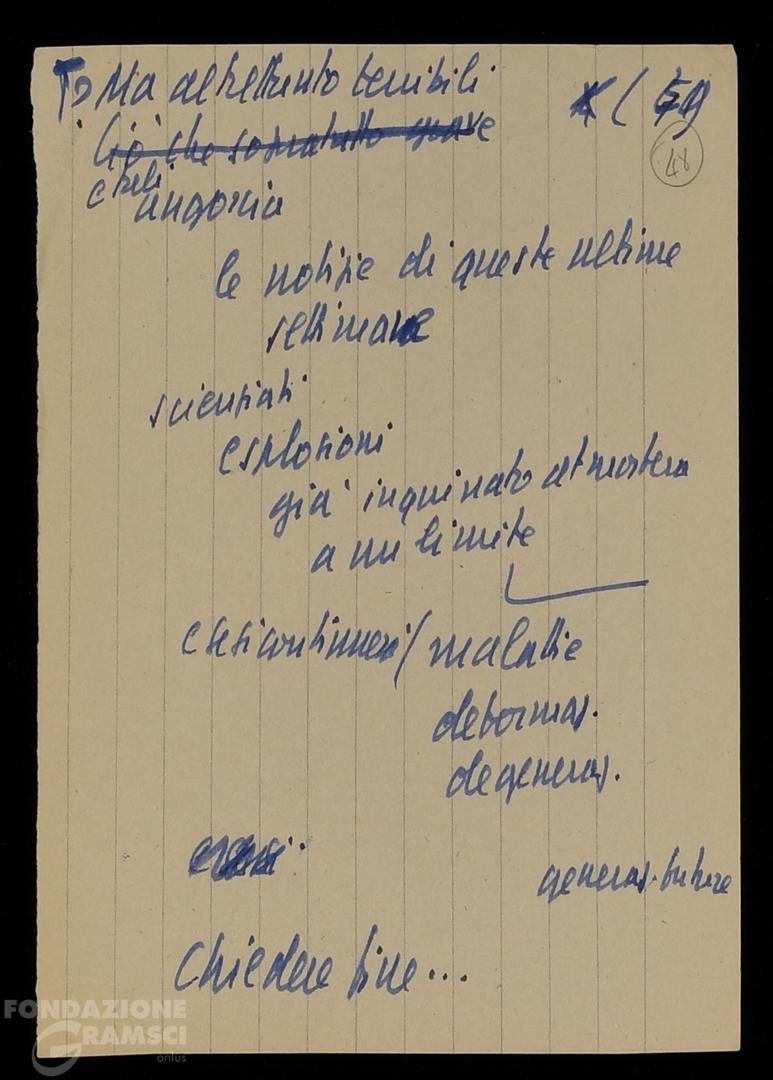 Ma altrettanto terribili
Ciò che sopratutto grave
angoscia
le notizie di queste ultime
settimane
scienziati
esplosioni
già inquinato atmosfera
a un limite
e se si continua / malattie
deformaz.
degeneraz.
generaz. future
Chiedere fine...
48
FONDAZIONE
GRAMSCI
onlus